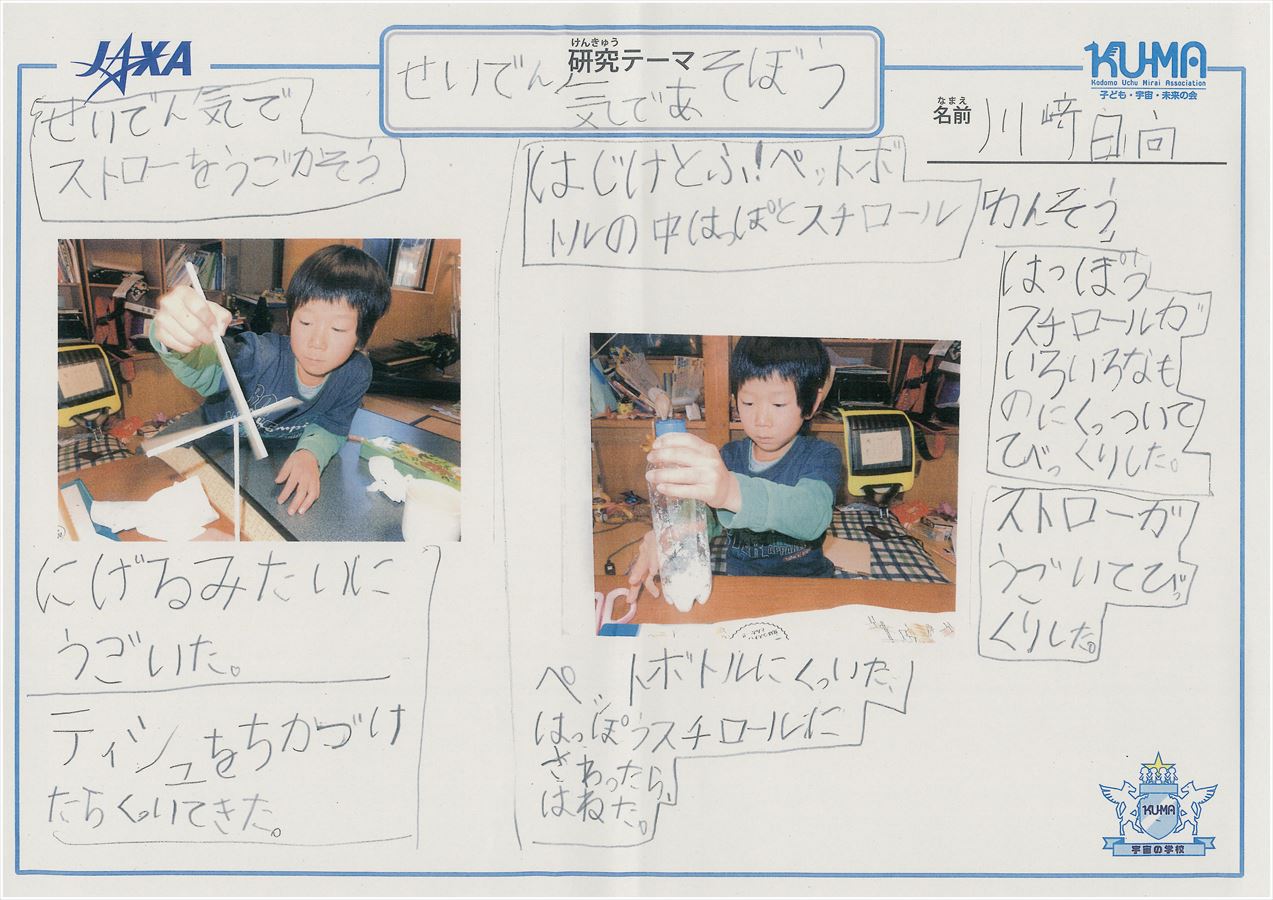 JAXA
けんきゅう
研究テーマ
せいでん気であそぼう
KU-MA
Kodomo Uchu Mirai Association
子ども・宇宙・未来の会
なまえ
名前
川崎日向
せいでん気で
ストローをうごかそう
にげるみたいに
うごいた。
ティシュをちかづけ
たらくっいてきた。
はじけとふ!ペットボ
トルの中はっぽとスチロール
ペットボトルにくっいた、
はっぽうスチロールに
さわったら、
はねた。
かんそう
はっぽう
スチロールが
いろいろなも
のにくっついて
てびっくりした。
ストローが
うごいてびっ
くりした。
KU-MA
宇宙の学校